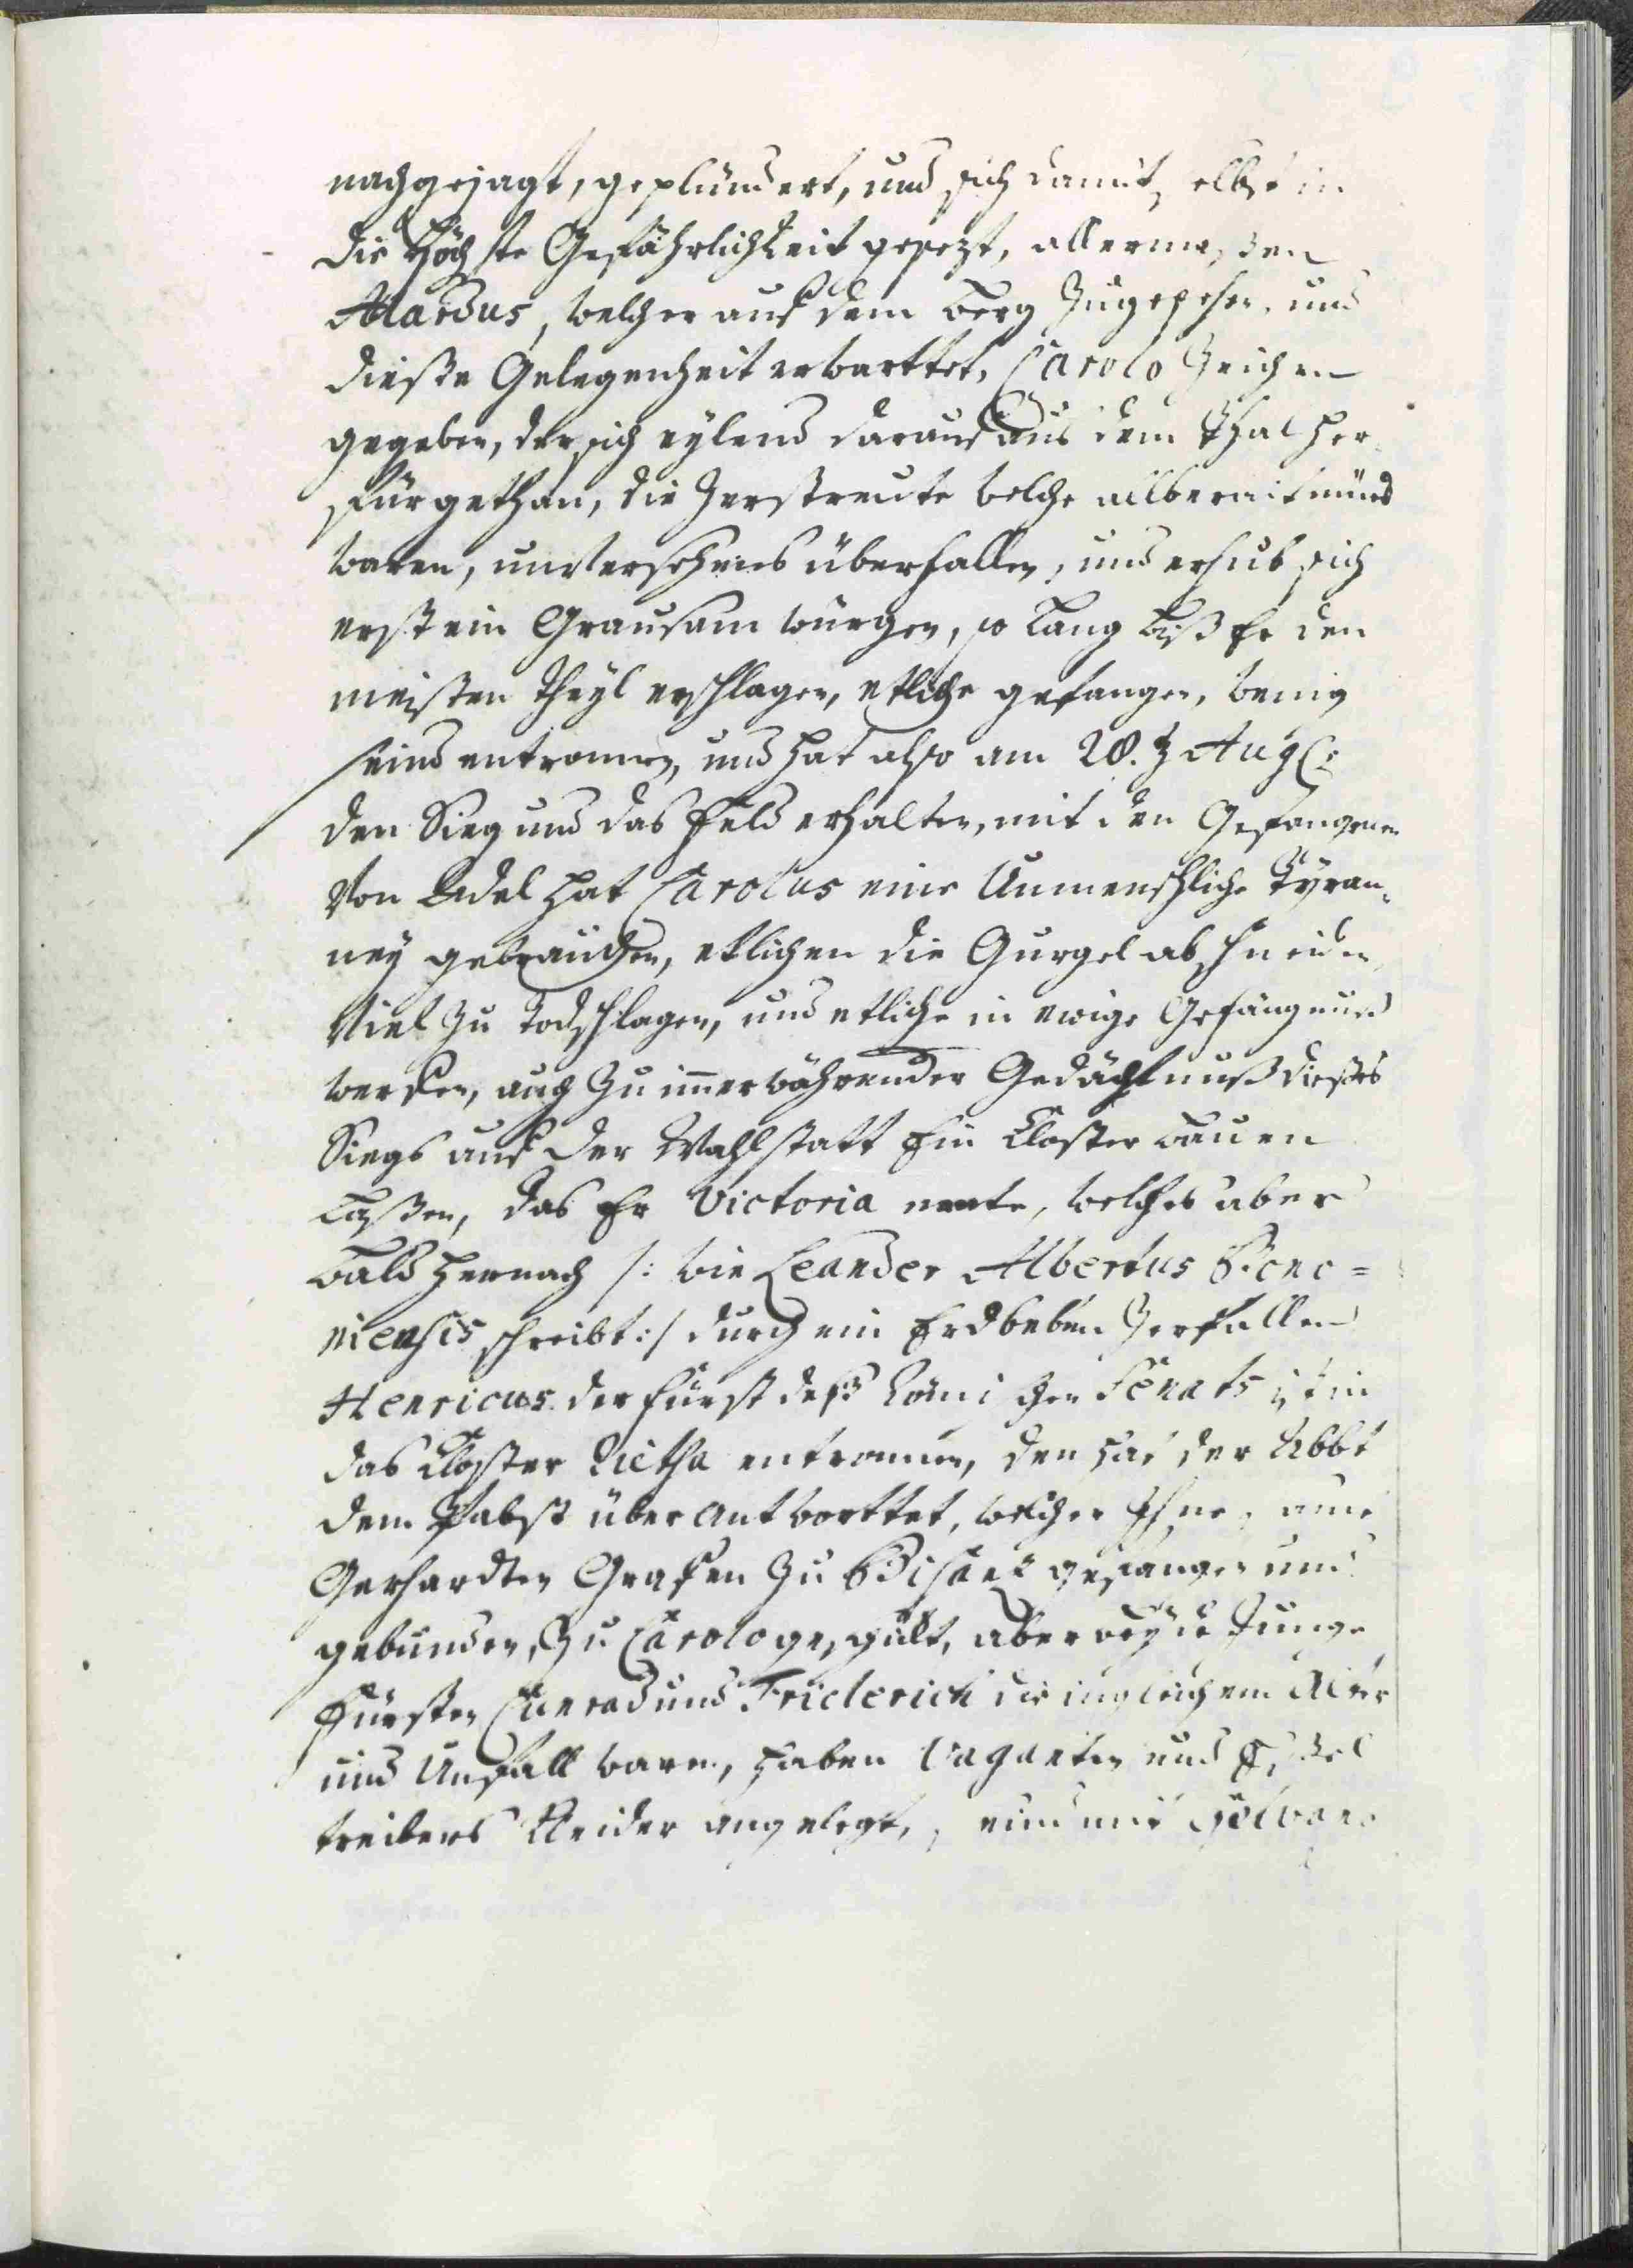 nachgejagt, geplündert, und sich damit selbst in
die Höchste Gefährlichkeit gesezt, allermaßen
Alardus, welcher auf dem berg Zugesehen, und
dieße Gelegenheit erwarttet, Carolo Zeichen
gegeben, der sich eylend darauf aus dem Thal her
für gethan, die Zerstreute welche allbereit müed
waren, unversehens überfallen, und erhub sich
erst ein Grausam würgen, so lang biß Er den
meisten Theyl erschlagen, etliche gefangen, wenig
seind entronnen, und hat also am 28. Aug:
den Sieg und das Feld erhalten, mit den Gefangenen
Von Adel hat Carolus eine Unmenschliche Tÿran-
neÿ gebrauchen, etlichen die Gurgel abschneiden
Viel zu Todschlagen, und etliche in ewige Gefängnus
werfen, auch Zu immerwährender Gedächtnuß dießes
Siegs auf der Wahlstatt Ein Closter bauen
laßen, das Er Victoria nente, welches aber
bald hernach /: wie Leander Albertus Bono=
niensis schreibt :/ durch ein Erdbeben Zerfallen
Henricus der Fürst deß Römischen Senats ist in
das Closter entronnen, den hat der Abbt
dem Pabst überantworttet, welcher Ihne,
Gerhardten Grafen Zu gefangen und
gebunden, Zu Carolo geschikt, aber beyde Junge
Fürsten Conrad und Friderich die in gleichem Alter
und Unfall waren, haben Vaganten und Eßel
treibers Kleider angelegt, seind mit